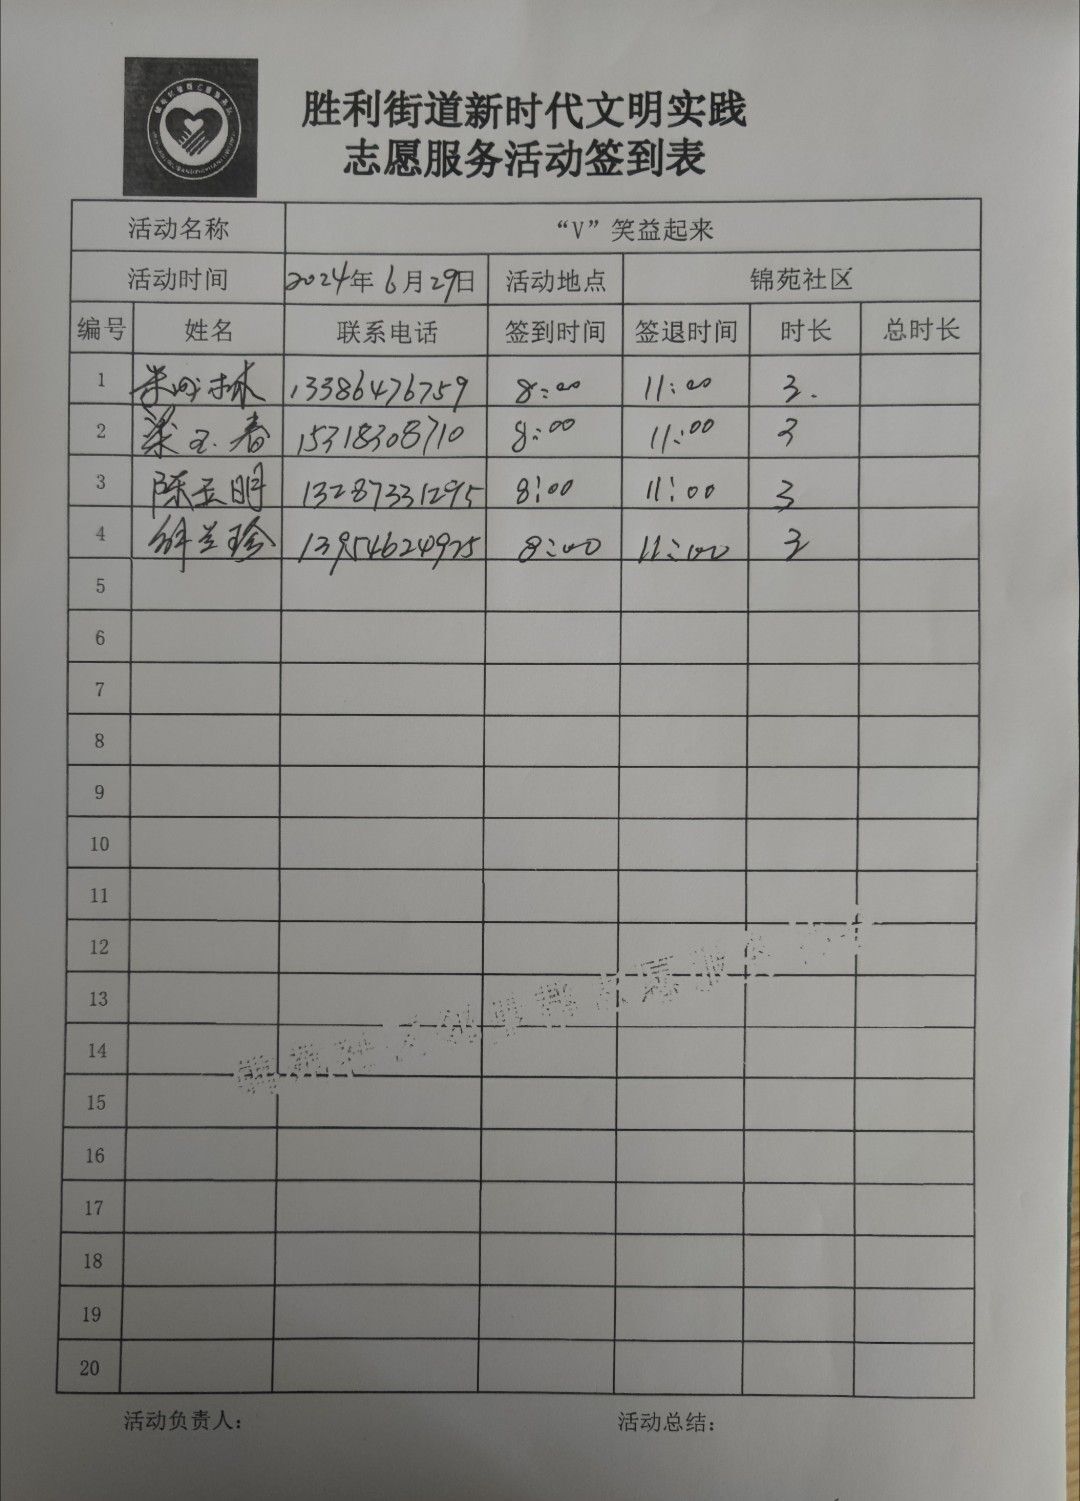 胜利街道新时代文明实践
志愿服务活动签到表
活动名称 “V”笑益起来
活动时间 2024年6月29日 活动地点 锦苑社区
编号 姓名 联系电话 签到时间 签退时间 时长 总时长
1 13386476759 8:00 11:00 3.
2 梁玉春 15318308710 8:00 11:00 3
3 陈玉明 13287331295 8:00 11:00 3
4 兰珍 13954624925 8:00 11:00 3
5
6
7
8
9
10
11
12
13
14
15
16
17
18
19
20
活动负责人: 活动总结: